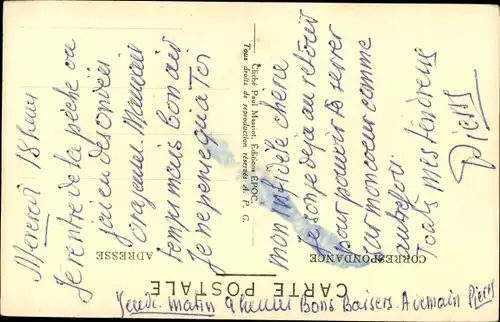 CARTE POSTALE
CORRESPONDANCE
ADRESSE
Cliché Paul Mauriot. Éditions ÉPOC.
Tous droits de reproduction réservés A. P. G.
Mercredi 18 heures
Je rentre de la pêche ou
j'ai eu des ondées
orageuses. Mauvais
temps mais bon air
Je ne pense qu'a Toi
mon infidèle cherie
Je songe deja au retour
pour pouvoir te serrer
sur mon cœur comme
autrefois
Touts mes tendresses
Pierre
Jeudi matin 9 heures Bons Baisers. A demain Pierre